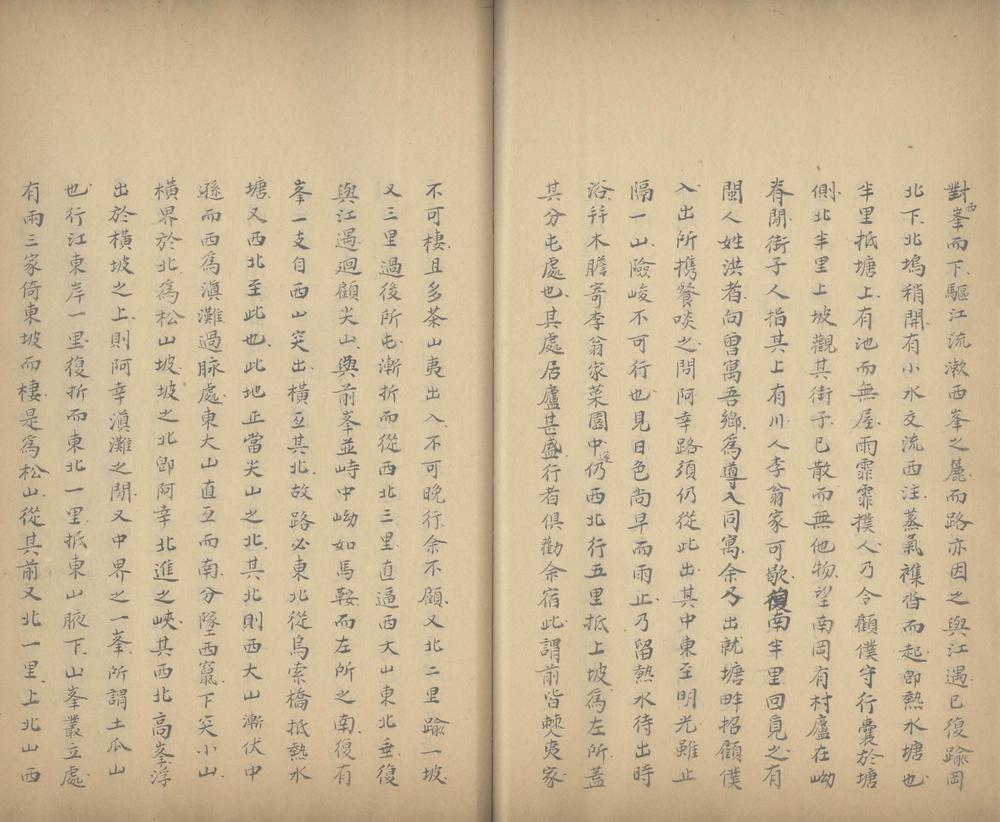 對西峯而下驅江流漱西峯之麓而路亦因之與江遇已復踰岡
北下北塢稍開有小水交流西注蒸氣襍沓而起卽熱水塘也
半里抵塘上有池而無屋雨霏霏撲人乃令顧僕守行囊於塘
側北半里上坡觀其街子已散而無他物望南岡有村廬在峧
脊閒街子人指其上有川人李翁家可歇復南半里回覓之有
閩人姓洪者向曾寓吾鄉爲導入同寓余乃出就塘畔招顧僕
入出所携餐啖之問阿幸路須仍從此出其中東至明光雖止
隔一山險峻不可行也見日色尚早而雨止乃留熱水待出時
浴幷木膽寄李翁家菜園中遂仍西北行五里抵上坡爲左所蓋
其分屯處也其處居廬甚盛行者俱勸余宿此謂前皆僰夷家
不可棲且多茶山夷出入不可晚行余不顧又北二里踰一坡
又三里過後所屯漸折而從西北三里直逼西大山東北垂復
與江遇廻顧尖山與前峯並峙中坳如馬鞍而左所之南復有
峯一支自西山突出橫亙其北故路必東北從烏索橋抵熱水
塘又西北至此也此地正當尖山之北其北則西大山漸伏中
遜而西爲滇灘過脉處東大山直亙而南分墜西竄下突小山
橫界於北爲松山坡坡之北卽阿幸北進之峽其西北高峯浮
出於橫坡之上則阿幸滇灘之閒又中界之一峯所謂土瓜山
也行江東岸一里復折而東北一里抵東山腋下山峯叢立處
有兩三家倚東坡而棲是爲松山從其前又北一里上北山西